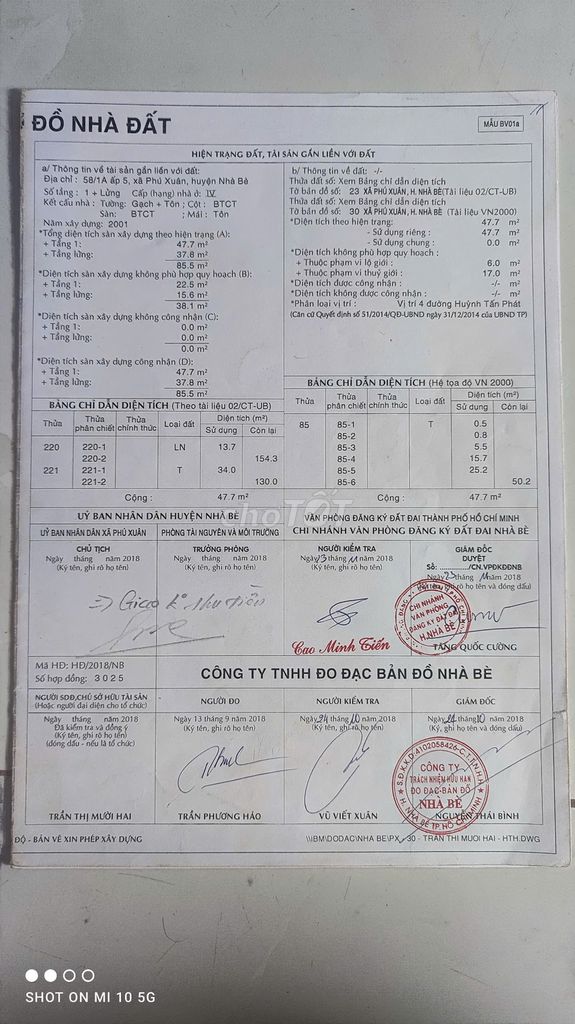 ĐỒ NHÀ ĐẤT
MẪU BV01a
HIỆN TRẠNG ĐẤT, TÀI SẢN GẮN LIỀN VỚI ĐẤT
a/ Thông tin về tài sản gắn liền với đất:
Địa chỉ : 58/1A ấp 5, xã Phú Xuân, huyện Nhà Bè
Số tầng : 1 + Lửng Cấp (hạng) nhà ở: IV
Kết cấu nhà : Tường: Gạch + Tôn ; Cột : BTCT
Sàn: BTCT ; Mái : Tôn
Năm xây dựng: 2001
*Tổng diện tích sàn xây dựng theo hiện trạng (A):
+ Tầng 1: 47.7 m²
+ Tầng lửng: 37.8 m²
85.5 m²
*Diện tích sàn xây dựng không phù hợp quy hoạch (B):
+ Tầng 1: 22.5 m²
+ Tầng lửng: 15.6 m²
38.1 m²
*Diện tích sàn xây dựng không công nhận (C):
+ Tầng 1: 0.0 m²
+ Tầng lửng: 0.0 m²
0.0 m²
*Diện tích sàn xây dựng công nhận (D):
+ Tầng 1: 47.7 m²
+ Tầng lửng: 37.8 m²
85.5 m²
b/ Thông tin về đất: -/-
Thửa đất số: Xem Bảng chỉ dẫn diện tích
Tờ bản đồ số: 23 XÃ PHÚ XUÂN, H. NHÀ BÈ(Tài liệu 02/CT-UB)
Thửa đất số: Xem Bảng chỉ dẫn diện tích
Tờ bản đồ số: 30 XÃ PHÚ XUÂN, H. NHÀ BÈ (Tài liệu VN2000)
*Diện tích theo hiện trạng: 47.7 m²
- Sử dụng riêng : 47.7 m²
- Sử dụng chung : 0.0 m²
*Diện tích không phù hợp quy hoạch :
+ Thuộc phạm vi lộ giới : 6.0 m²
+ Thuộc phạm vi thuỷ giới : 17.0 m²
*Diện tích được công nhận : -/- m²
*Diện tích không được công nhận : -/- m²
*Phân loại vị trí : Vị trí 4 đường Huỳnh Tấn Phát
(Căn cứ Quyết định số 51/2014/QĐ-UBND ngày 31/12/2014 của UBND TP)
BẢNG CHỈ DẪN DIỆN TÍCH (Theo tài liệu 02/CT-UB)
Thửa Thửa phân chiết Thửa chính thức Loại đất Diện tích (m²)
Sử dụng Còn lại
220 220-1 LN 13.7
220-2 154.3
221 221-1 T 34.0
221-2 130.0
Cộng : 47.7 m²
BẢNG CHỈ DẪN DIỆN TÍCH (Hệ tọa độ VN 2000)
Thửa Thửa phân chiết Thửa chính thức Loại đất Diện tích (m²)
Sử dụng Còn lại
85 85-1 T 0.5
85-2 0.8
85-3 5.5
85-4 15.7
85-5 25.2
85-6 50.2
Cộng : 47.7 m²
choTỐT
UỶ BAN NHÂN DÂN HUYỆN NHÀ BÈ
UỶ BAN NHÂN DÂN XÃ PHÚ XUÂN
CHỦ TỊCH
Ngày tháng năm 2018
(Ký tên, ghi rõ họ tên)
PHÒNG TÀI NGUYÊN VÀ MÔI TRƯỜNG
TRƯỞNG PHÒNG
Ngày tháng năm 2018
(Ký tên, ghi rõ họ tên)
VĂN PHÒNG ĐĂNG KÝ ĐẤT ĐAI THÀNH PHỐ HỒ CHÍ MINH
CHI NHÁNH VĂN PHÒNG ĐĂNG KÝ ĐẤT ĐAI NHÀ BÈ
NGƯỜI KIỂM TRA
Ngày 23 tháng 11 năm 2018
(Ký tên, ghi rõ họ tên)
Cao Minh Tiến
GIÁM ĐỐC
DUYỆT
Số: ......../CN.VPĐKĐĐNB
Ngày 23 tháng 11 năm 2018
(Ký tên, ghi rõ họ tên)
CHI NHÁNH
VĂN PHÒNG
ĐĂNG KÝ ĐẤT ĐAI
H. NHÀ BÈ
TĂNG QUỐC CƯỜNG
Mã HĐ: HĐ/2018/NB
Số hợp đồng: 3025
CÔNG TY TNHH ĐO ĐẠC BẢN ĐỒ NHÀ BÈ
NGƯỜI SDĐ,CHỦ SỞ HỮU TÀI SẢN
(Hoặc người đại diện cho tổ chức)
Ngày tháng năm 2018
Đã kiểm tra và đồng ý
(Ký tên, ghi rõ họ tên)
(đóng dấu - nếu là tổ chức)
TRẦN THỊ MƯỜI HAI
NGƯỜI ĐO
Ngày 13 tháng 9 năm 2018
(Ký tên, ghi rõ họ tên)
TRẦN PHƯƠNG HẢO
NGƯỜI KIỂM TRA
Ngày 24 tháng 10 năm 2018
(Ký tên, ghi rõ họ tên)
VŨ VIẾT XUÂN
GIÁM ĐỐC
Ngày 24 tháng 10 năm 2018
(Ký, ghi rõ họ tên và đóng dấu)
S.Đ.K.K.D:4102058426-C.T.T.N.H.H
CÔNG TY
TRÁCH NHIỆM HỮU HẠN
ĐO ĐẠC-BẢN ĐỒ
NHÀ BÈ
H. NHÀ BÈ TP. HỒ CHÍ MINH
NGUYỄN THÁI BÌNH
ĐỘ - BẢN VẼ XIN PHÉP XÂY DỰNG
\\IBM\DODAC\NHA BE\PX - 30 - TRAN THI MUOI HAI - HTH.DWG
SHOT ON MI 10 5G